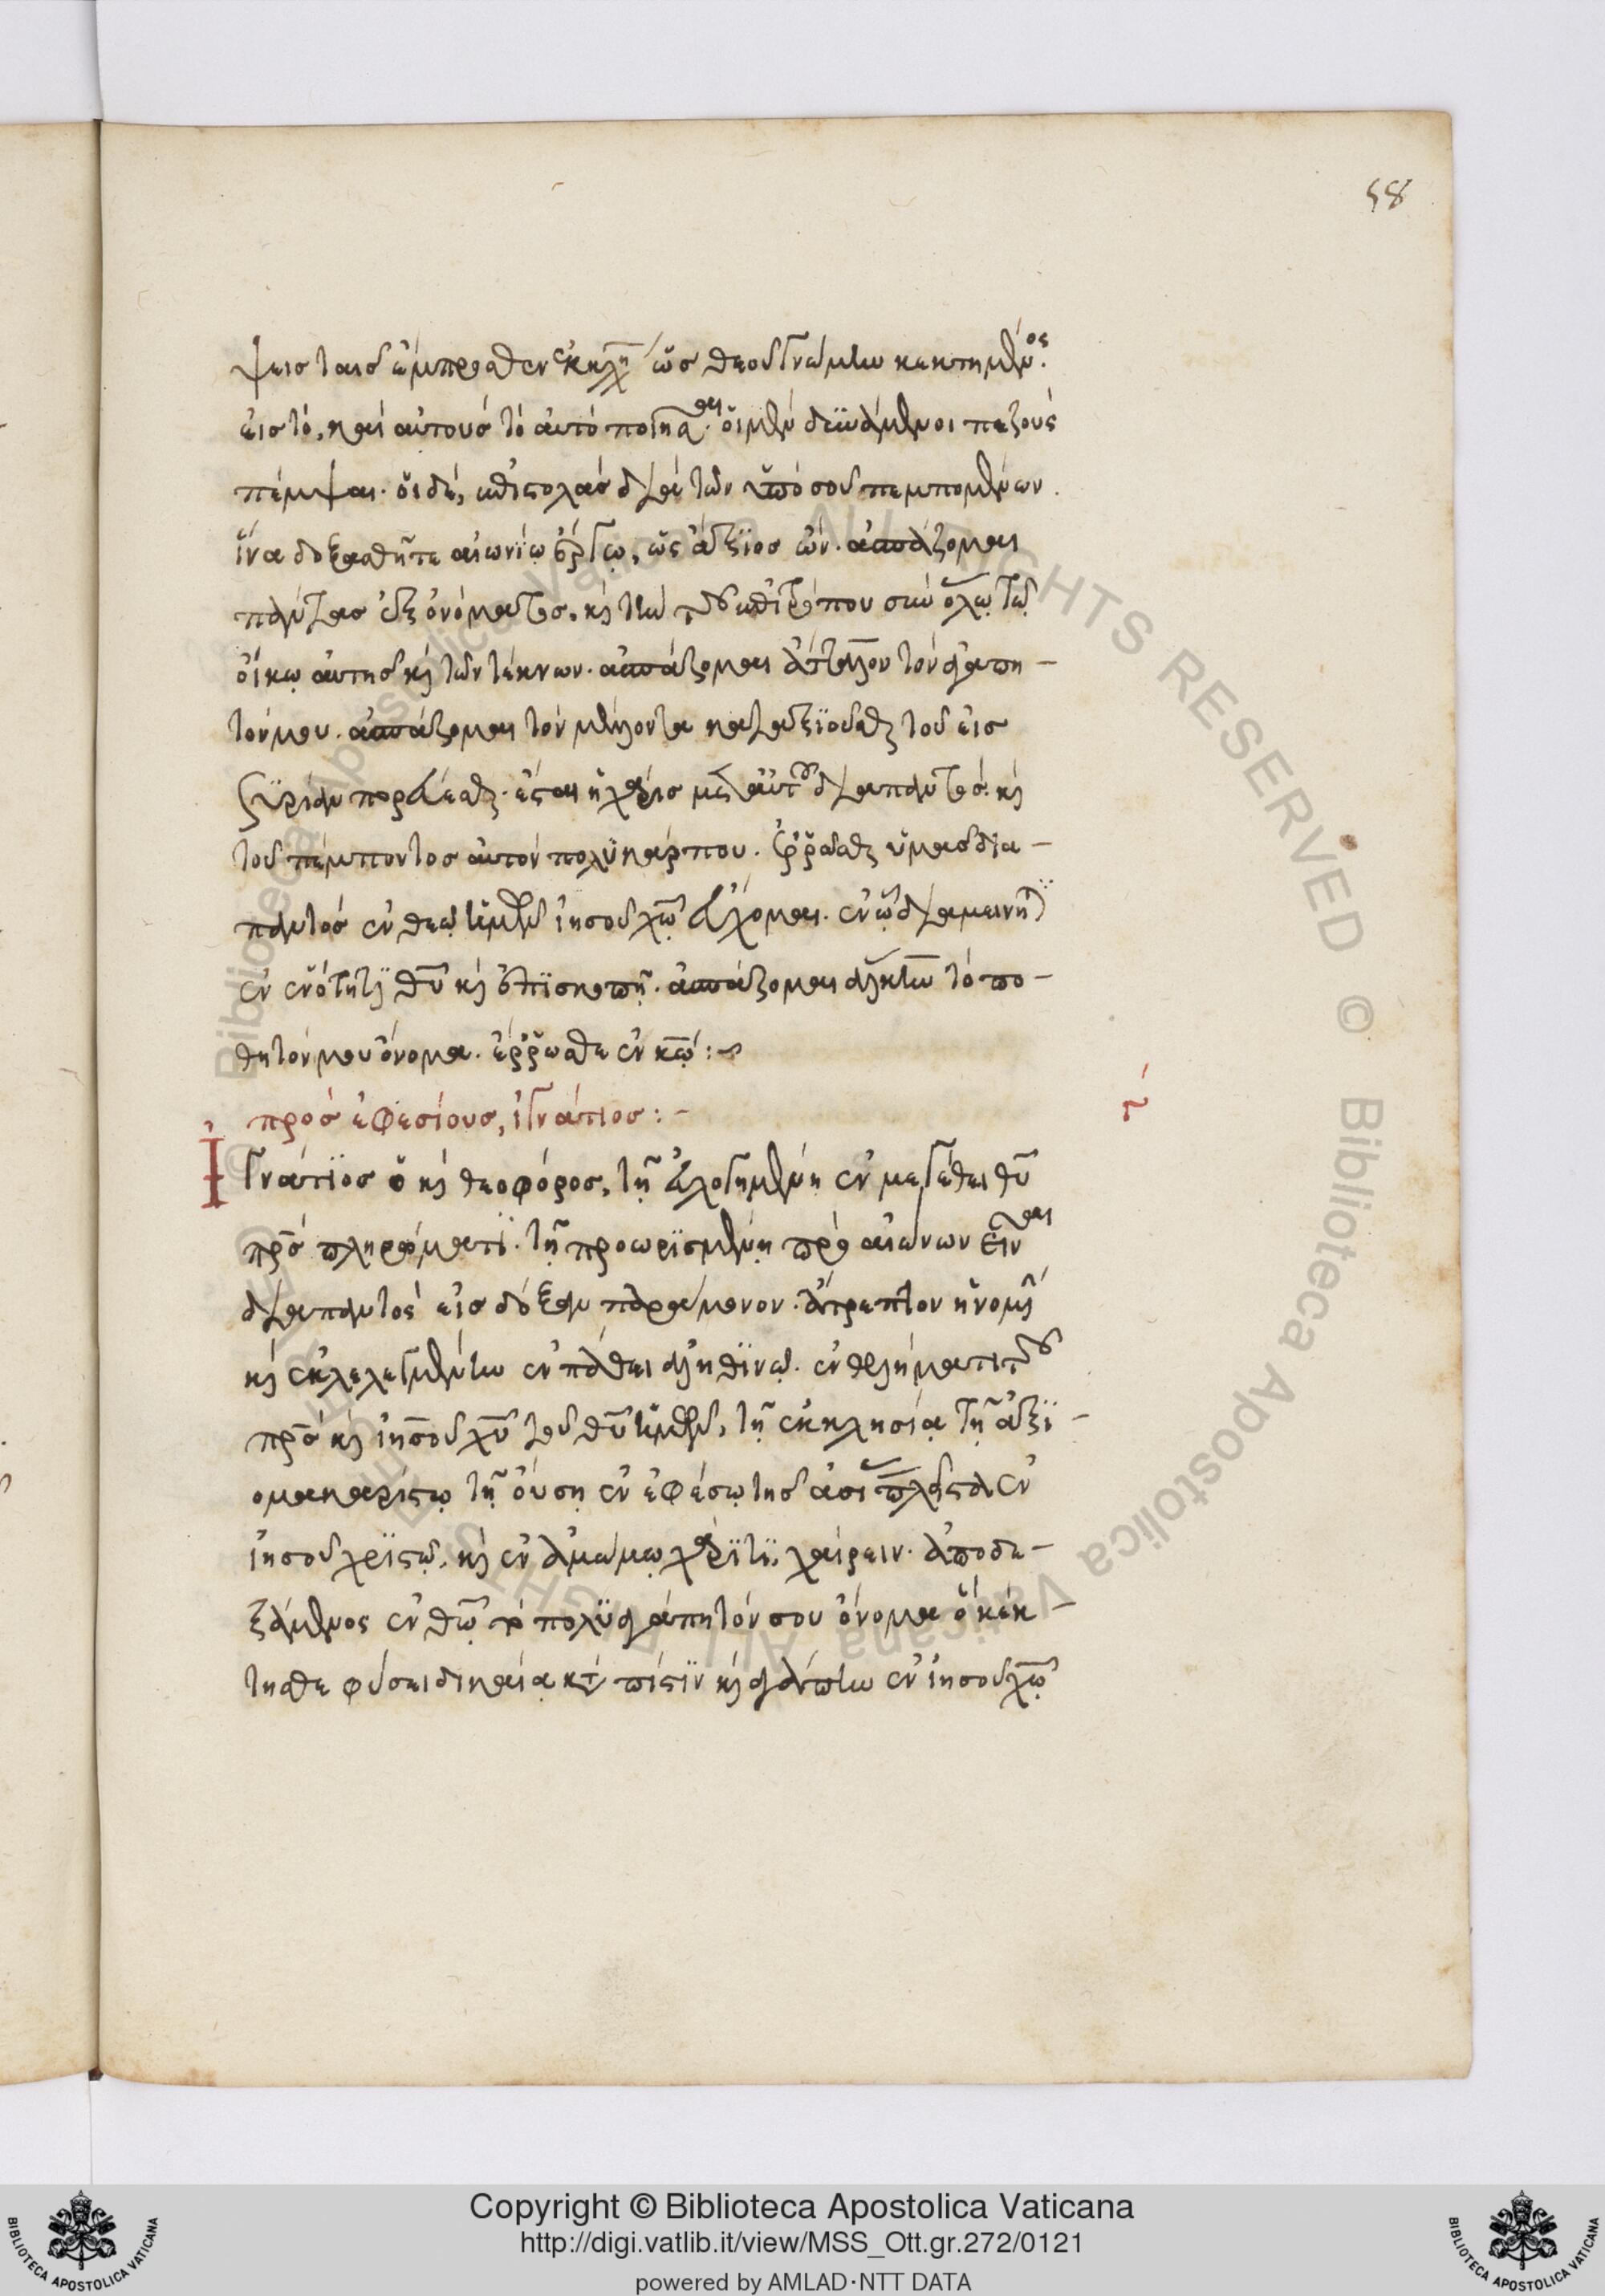 58
ψεις ταῖς ἔμπροσθεν ἐκκλη ὡς θεοῦ γνώμην κεκτημένος.
εἰς τό, καὶ αὐτοὺς τὸ αὐτὸ ποιῆσαι. οἱ μὲν δυνάμενοι πεζοὺς
πέμψαι. οἱ δέ, ἐπιστολὰς διὰ τῶν ὑπό σου πεμπομένων.
ἵνα δοξασθῆτε αἰωνίῳ ἔργῳ, ὡς ἄξιος ὤν. ἀσπάζομαι
πάντας ἐξ ὀνόματος, κ̀ τὴν τοῦ ἐπιτρόπου σὺν ὅλῳ τῷ
οἴκῳ αὐτῆς κ̀ τῶν τέκνων. ἀσπάζομαι ἄτταλον τὸν ἀγαπη –
τόν μου. ἀσπάζομαι τὸν μέλλοντα καταξιοῦσθαι τοῦ εἰς
συρίαν πορεύεσθαι. ἔσται ἡ χάρις μετ' αὐτοῦ διαπαντός. κ̀
τοῦ πέμποντος αὐτὸν πολυκάρπου. ἐρρῶσθαι ὑμᾶς δια –
παντὸς ἐν θεῷ ἡμῶν ἰησοῦ χῶ εὔχομαι. ἐν ᾧ διαμείνητε
ἐν ἑνότητι θῦ κ̀ ἐπισκοπῇ. ἀσπάζομαι ἄλκην τὸ πο –
θητόν μου ὄνομα. ἔρρωσθε ἐν κῶ : ~
πρὸς ἐφεσίους, ἰγνάτιος : –
γ
Ἰγνάτιος ὁ κ̀ θεοφόρος, τῇ εὐλογημένῃ ἐν μεγέθει θῦ
πρς πληρώματι. τῇ προωρισμένῃ πρὸ αἰώνων εἶναι
διαπαντὸς εἰς δόξαν παράμονον. ἄτρεπτον ἡνομένην
κ̀ ἐκλελεγμένην ἐν πάθει ἀληθινῷ. ἐν θελήματι τοῦ
πρς κ̀ ἰησοῦ χῦ τοῦ θῦ ἡμῶν, τῇ ἐκκλησίᾳ τῇ ἀξι –
ομακαρίστῳ τῇ οὔσῃ ἐν ἐφέσῳ τῆς ἀσίας πλεῖστα ἐν
ἰησοῦ χριστῷ, κ̀ ἐν ἀμώμῳ χάριτι, χαίρειν. ἀποδε –
ξάμενος ἐν θῶ τὸ πολυαγάπητόν σου ὄνομα ὃ κέκ –
τησθε φύσει δικαίᾳ κτ πίστιν κ̀ ἀγάπην ἐν ἰησοῦ χῶ
Copyright © Biblioteca Apostolica Vaticana
http://digi.vatlib.it/view/MSS_Ott.gr.272/0121
powered by AMLAD·NTT DATA
BIBLIOTECA APOSTOLICA VATICANA
BIBLIOTECA APOSTOLICA VATICANA